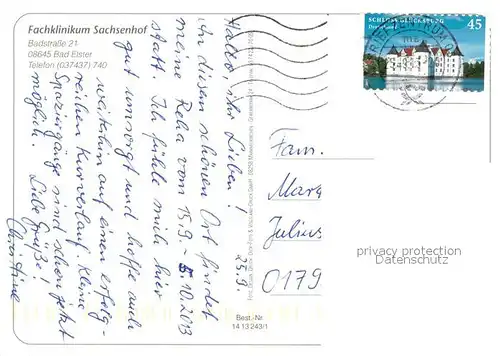 Fachklinikum Sachsenhof
Badstraße 21
08645 Bad Elster
Telefon (037437) 740
Hallo, ihr Lieben!
In diesem schönen Ort findet
meine Reha vom 15.9. - 5.10.2013
statt. Ich fühle mich hier
gut umsorgt und hoffe auch
weiterhin auf einen erfolg-
reichen Kurverlauf. Kleine
Spaziergänge sind schon jetzt
möglich. Liebe Grüße!
Christine
25.9.
Best.-Nr.
14 13 243/1
SCHLOSS GLÜCKSBURG
45
Fam.
Marg
Julius
0179
privacy protection
Datenschutz